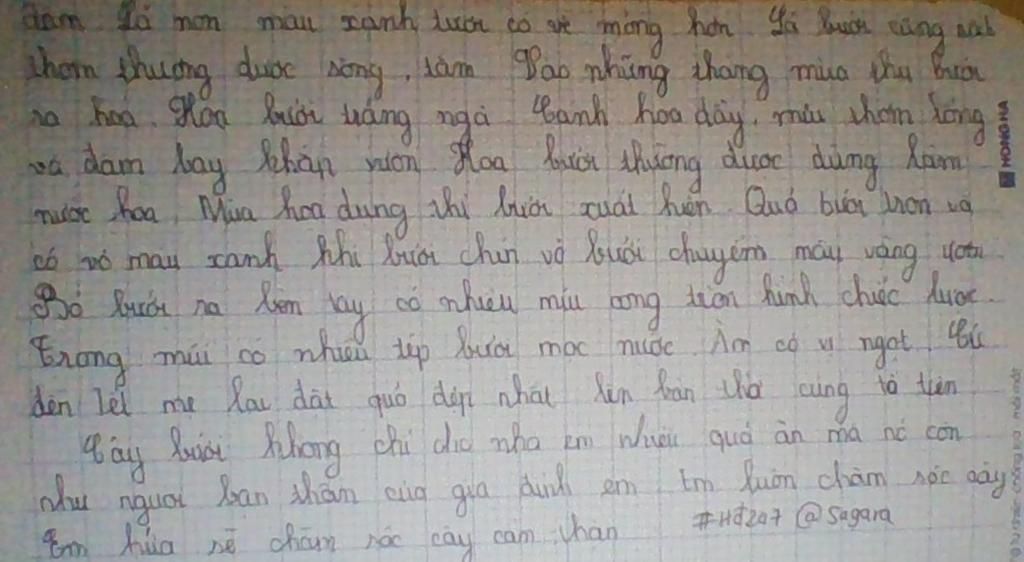 đam Lá non màu xanh tươi có vẻ mỏng hơn Lá bưởi cũng rất
thơm thường được sông, tắm Vào những thang mùa thu bưởi
ra hoa. Hoa bưởi trắng ngà Cánh hoa dây, mùi thơm lóng
và đam bay khắp vườn Hoa bưởi thường được dùng làm
nước hoa, Mùa hoa dung thì bưởi xuất hiên. Quả bưởi tròn và
có vỏ màu xanh khi bưởi chín vỏ bưởi chuyểm màu vàng ươm
Bổ bưởi ra bên tay có nhiều múi cong tiên hình chiếc lược.
Trong múi có nhiều tép bưởi mọc nước Ăn có vị ngọt Cứ
đên Tết mẹ lại đăt quả đẹp nhất lên bàn thờ cúng tổ tiên
Cây bưởi không chỉ cho nha em nhiều quả ăn mà nó còn
như người bạn thân của gia đình em Em luôn chăm sóc cây
Em hứa sẽ chăm sóc cây cẩn thân #Hd247 @Sagara
HONGHA